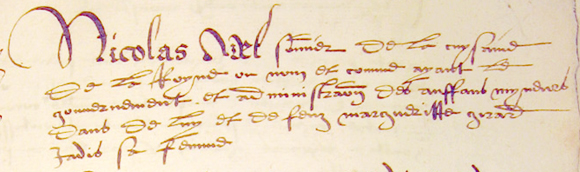 Nicolas sommier De la cuysine
De la Royne ou nom et comme ayant le
gouvernement et administraon des anffans myneurs
dans de luy et de feue margueritte girard
Jadis sa femme